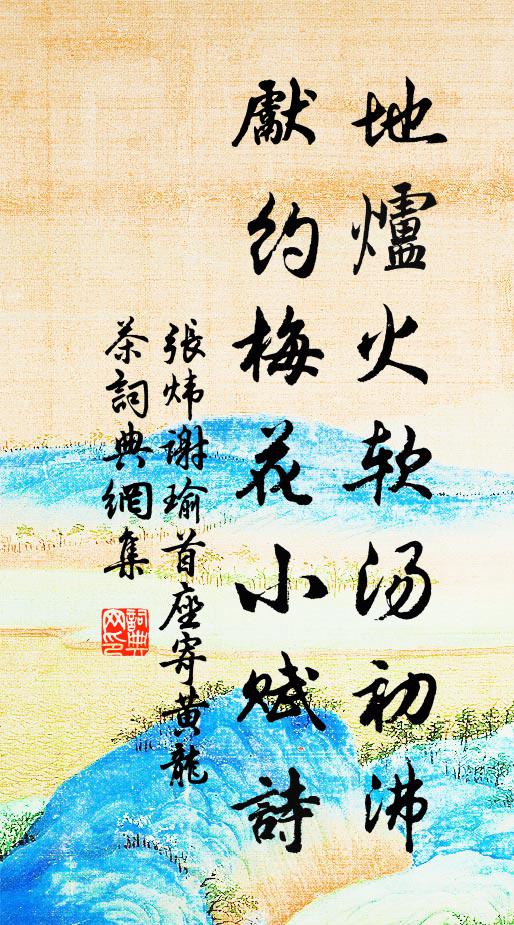 地爐火软汤初沸
獻約梅花小赋詩
張炜谢瑜首座寄黄龍
茶詞典網集
詞典